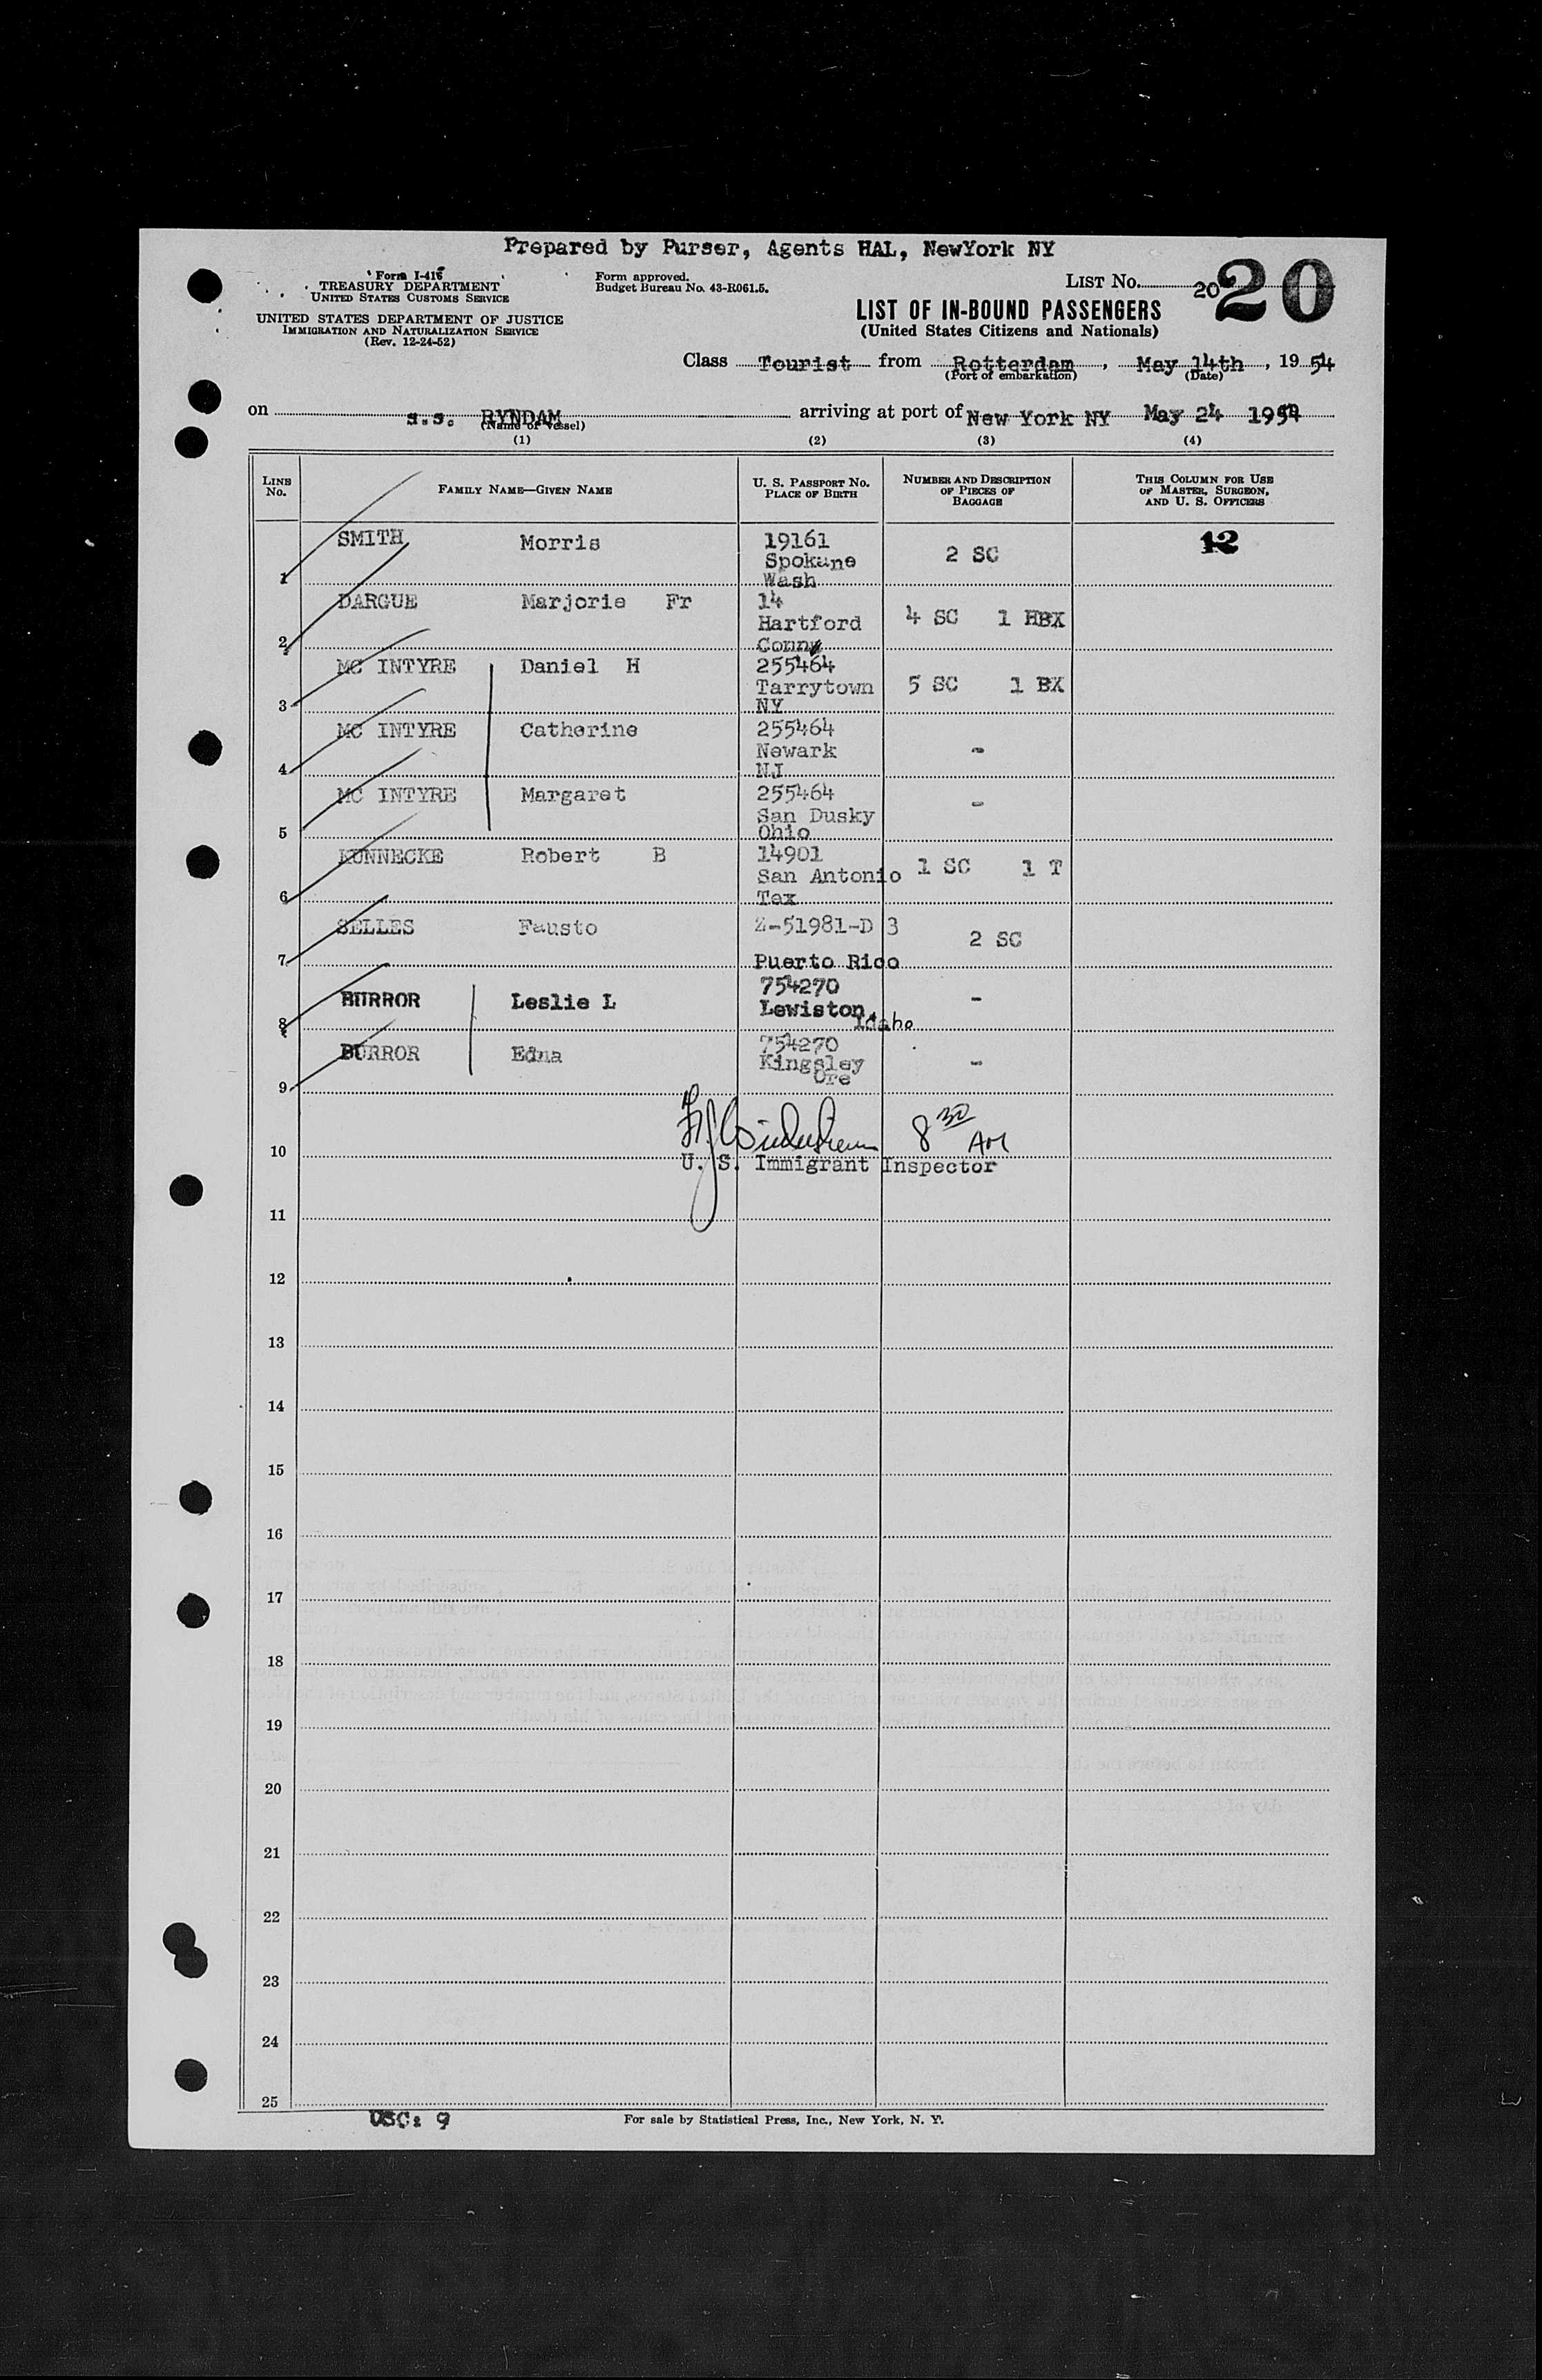 Prepared by Purser, Agents HAL, NewYork NY
Form I-418
TREASURY DEPARTMENT
UNITED STATES CUSTOMS SERVICE
UNITED STATES DEPARTMENT OF JUSTICE
IMMIGRATION AND NATURALIZATION SERVICE
(Rev. 12-24-52)
Form approved.
Budget Bureau No. 43-R061.5.
LIST No. 20 20
LIST OF IN-BOUND PASSENGERS
(United States Citizens and Nationals)
Class Tourist from Rotterdam, May 14th, 19 54
(Port of embarkation) (Date)
on s.s. RYNDAM arriving at port of New York NY May 24 1954
(Name of Vessel)
(1) (2) (3) (4)
LINE No. FAMILY NAME—GIVEN NAME U. S. PASSPORT No. PLACE OF BIRTH NUMBER AND DESCRIPTION OF PIECES OF BAGGAGE THIS COLUMN FOR USE OF MASTER, SURGEON, AND U. S. OFFICERS
1 SMITH Morris 19161 Spokane Wash 2 SC 12
2 DARGUE Marjorie Fr 14 Hartford Conn 4 SC 1 HBX
3 MC INTYRE Daniel H 255464 Tarrytown NY 5 SC 1 BX
4 MC INTYRE Catherine 255464 Newark NJ -
5 MC INTYRE Margaret 255464 San Dusky Ohio -
6 KUNNECKE Robert B 14901 San Antonio Tex 1 SC 1 T
7 SELLES Fausto Z-51981-D 3 Puerto Rico 2 SC
8 BURROR Leslie L 754270 Lewiston, Idaho -
9 BURROR Edna 754270 Kingsley Ore -
8 30 AM
10 U. S. Immigrant Inspector
11
12
13
14
15
16
17
18
19
20
21
22
23
24
25
USC: 9
For sale by Statistical Press, Inc., New York, N. Y.